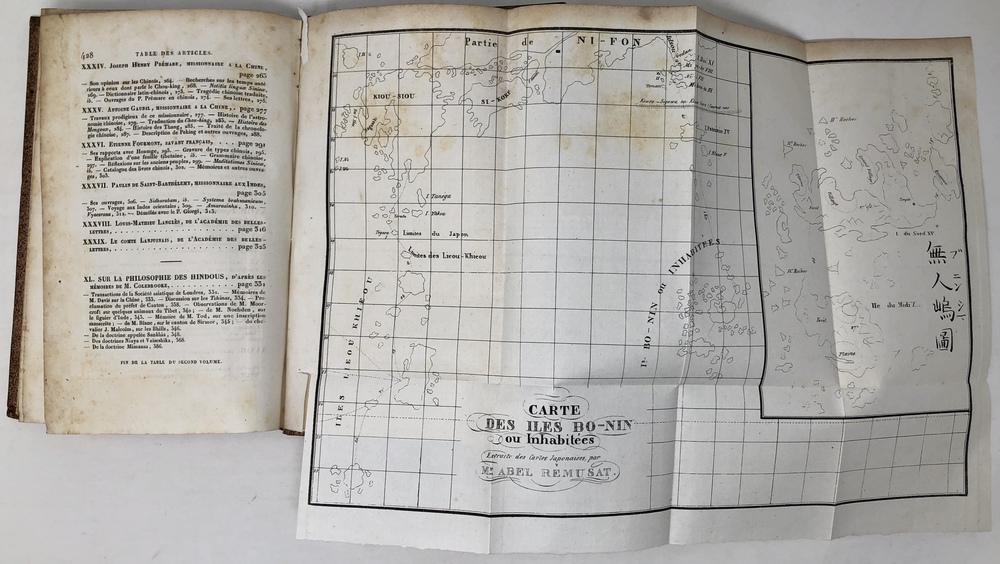 428 TABLE DES ARTICLES.
XXXIV. JOSEPH HENRY PRÉMARE, MISSIONNAIRE A LA CHINE,
page 263
— Son opinion sur les Chinois, 264. — Recherches sur les temps anté-
rieurs à ceux dont parle le Chou-king, 268. — Notitia linguæ Sinicæ,
269. — Dictionnaire latin-chinois, 272. — Tragédie chinoise traduite,
ib. — Ouvrages du P. Prémare en chinois, 274. — Ses lettres, 276.
XXXV. ANTOINE GAUBIL, MISSIONNAIRE A LA CHINE, page 277
— Travaux prodigieux de ce missionnaire, 277. — Histoire de l'astro-
nomie chinoise, 279. — Traduction du Chou-king, 283. — Histoire des
Mongoux, 284. — Histoire des Thang, 285. — Traité de la chronolo-
gie chinoise, 287. — Description de Peking et autres ouvrages, 288.
XXXVI. ETIENNE FOURMONT, SAVANT FRANÇAIS, . . . page 291
— Ses rapports avec Hoange, 293. — Gravure de types chinois, 295.
— Explication d'une feuille tibétaine, ib. — Grammaire chinoise,
297. — Réflexions sur les anciens peuples, 299. — Meditationes Sinicæ,
ib. — Catalogue des livres chinois, 302. — Mémoires et autres ouvra-
ges, 303.
XXXVII. PAULIN DE SAINT-BARTHÉLEMY, MISSIONNAIRE AUX INDES,
page 305
— Ses ouvrages, 306. — Sidharubam, ib. — Systema brahmanicum,
307. — Voyage aux Indes orientales, 309. — Amarasinha, 310. —
Vyacarana, 312. — Démêlés avec le P. Giorgi, 313.
XXXVIII. LOUIS-MATHIEU LANGLÈS, DE L'ACADÉMIE DES BELLES-
LETTRES, . . . page 316
XXXIX. LE COMTE LANJUINAIS, DE L'ACADÉMIE DES BELLES-
LETTRES, . . . page 325
XL. SUR LA PHILOSOPHIE DES HINDOUS, D'APRÈS LES
MÉMOIRES DE M. COLEBROOKE, . . . page 331
— Transactions de la Société asiatique de Londres, 331. — Mémoires de
M. Davis sur la Chine, 333. — Discussion sur les Tchinas, 334. — Pro-
clamation du préfet de Canton, 338. — Observations de M. Moor-
croft sur quelques animaux du Tibet, 340; — de M. Noehden, sur
le figuier d'Inde, 343. — Mémoire de M. Tod, sur une inscription
sanscrite; — de M. Blane, sur le canton de Sirmor, 345; — du che-
valier J. Malcolm, sur les Bhills, 346.
— De la doctrine appelée Sankhia, 348.
— Des doctrines Niaya et Vaiseshika, 368.
— De la doctrine Mimansa, 386.
FIN DE LA TABLE DU SECOND VOLUME.
Partie de NI-FON
KIOU-SIOU
SI-KOKF
I. Tanega
I. Yakou
Limites du Japon
Limites des Lieou-Khieou
ILES LIEOU KHIEOU
Is. BO-NIN ou INHABITÉES
CARTE
DES ILES BO-NIN
ou Inhabitées
Extraite des Cartes Japonaises, par
Mr. ABEL REMUSAT.
I. du Nord XV
Ile du Midi
無人嶋圖
ブニンシマ